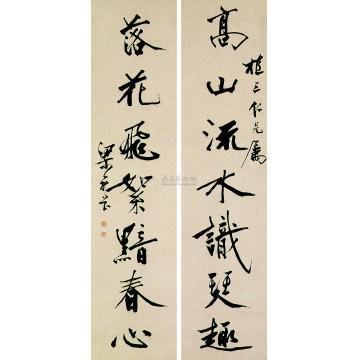 高山流水識琴趣
植三仁兄屬
落花飛絮黯春心
梁